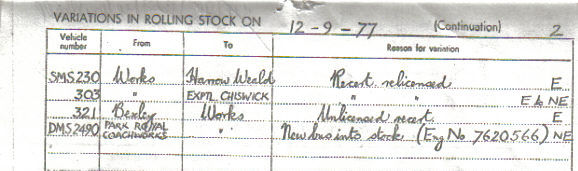 VARIATIONS IN ROLLING STOCK ON 12-9-77 (Continuation) 2
Vehicle number From To Reason for variation
SMS230 Works Harrow Weald Recert. relicensed E
303 " EXPTL CHISWICK " " E to NE
321 Bexley Works Unlicensed recert. E
DMS2490 PARK ROYAL COACHWORKS " New bus into stock (Eng No 7620566) NE